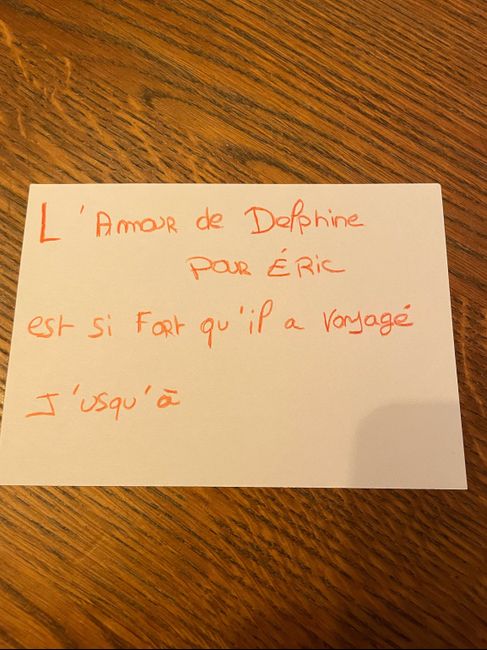 L'Amour de Delphine
pour Éric
est si Fort qu'il a voyagé
J'usqu'à